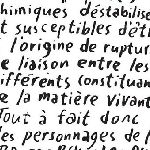 himiques déstabilise
t susceptibles d'êt
l'origine de ruptur
e liaison entre les
ifférents constituan
e la matière vivant
Tout à fait donc
es personnages de l